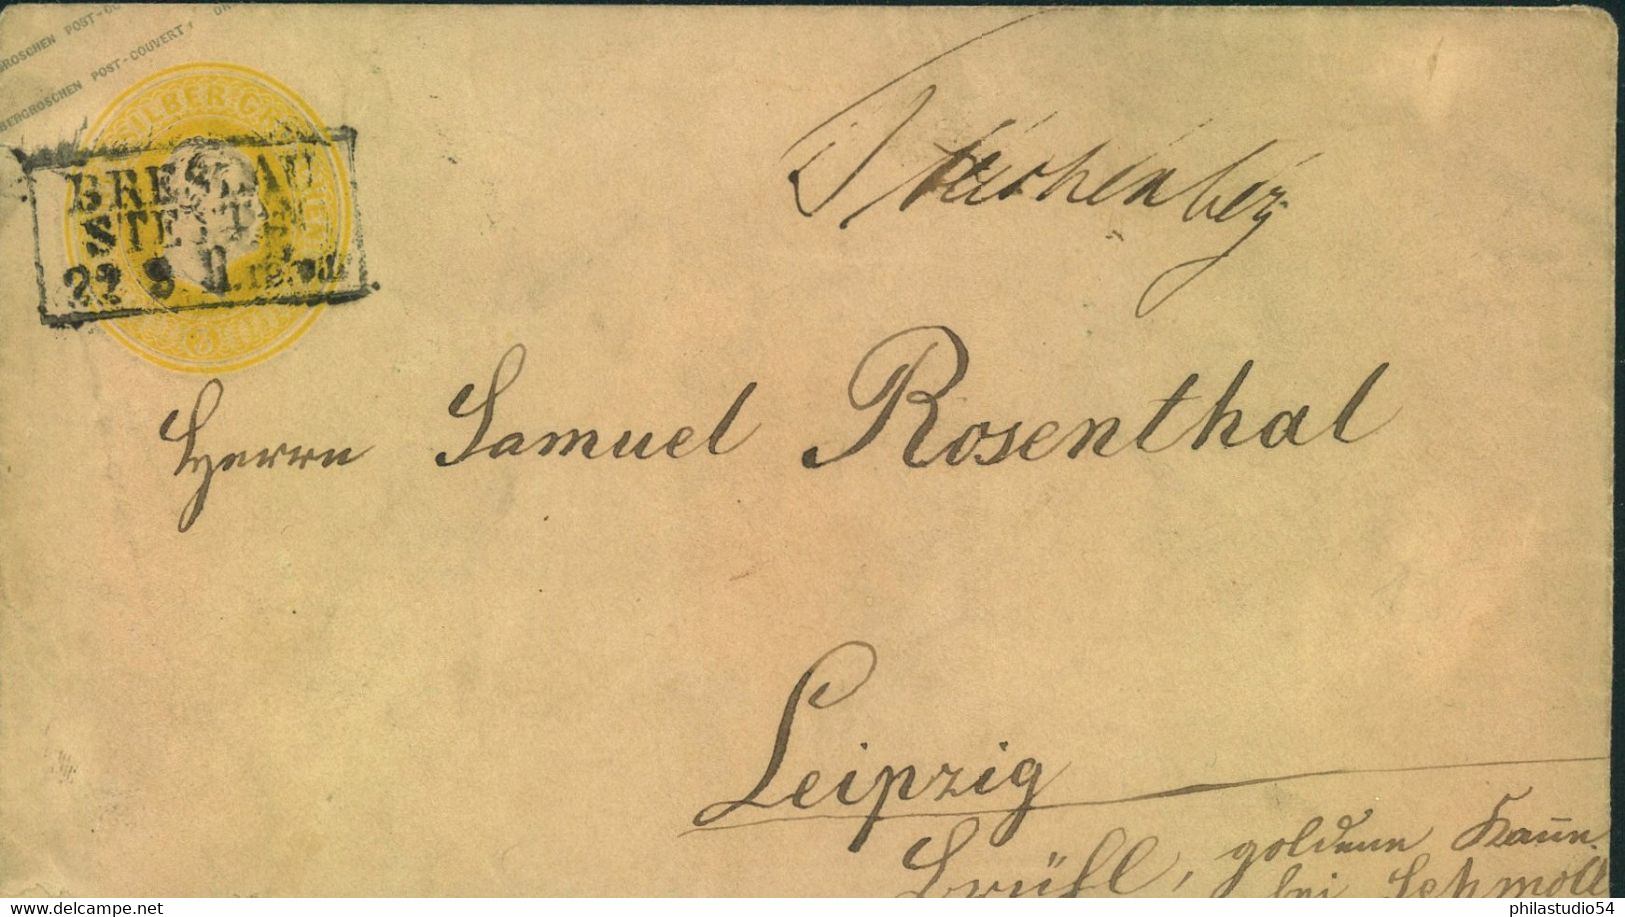 GROSCHEN POST-CO
BERGROSCHEN POST-COUVERT
SILBER G
BRESLAU
STETTIN
22 9 II.
Trachenberg
Herrn Samuel Rosenthal
Leipzig
Brühl, goldene Kanne
bei Schmoll
www.delcampe.net
philastudio54